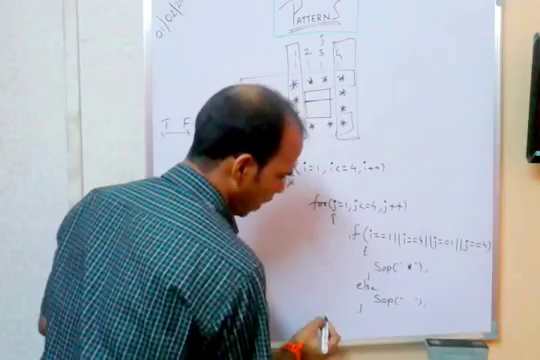 01/02/
PATTERNS
j
1 2 3 4
* * * *
* *
* *
* * *
T F
(i=1, i<=4, i++)
for(j=1, j<=4, j++)
{
if (i==1||i==4||j==1||j==4)
{
Sop("*");
}
else
Sop(" ");
}